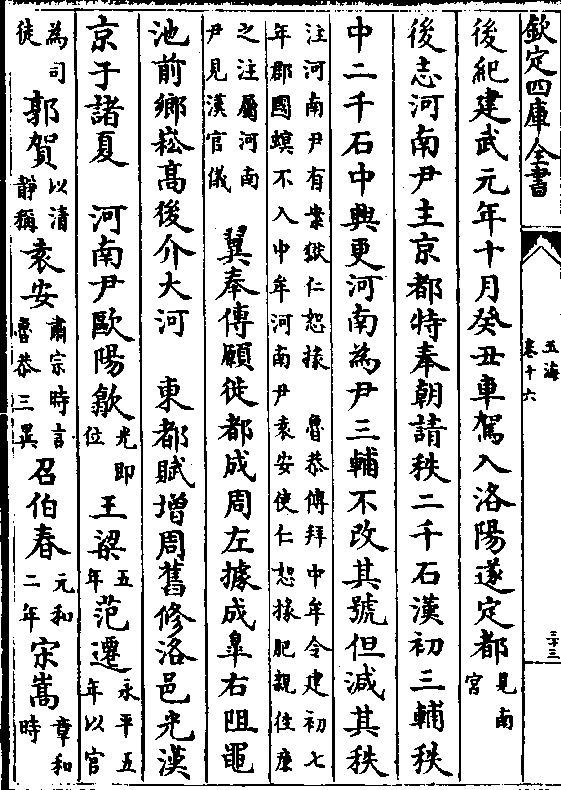 欽定四庫全書
玉海
卷十六
三十三
後紀建武元年十月癸丑車駕入洛陽遂定都見南宮
後志河南尹主京都特奉朝請秩二千石漢初三輔秩
中二千石中興更河南為尹三輔不改其號但減其秩
注河南尹有案獄仁恕掾　魯恭傳拜中牟令建初七
年郡國螟不入中牟河南尹袁安使仁恕掾肥親往廉
之注屬河南
尹見漢官儀
翼奉傳願徙都成周左據成臯右阻黽
池前鄉崧高後介大河　東都賦增周舊修洛邑光漢
京于諸夏　河南尹歐陽歙光即位王梁五年范遷永平五年以官
為司徒郭賀以清靜稱袁安肅宗時言魯恭三異召伯春元和二年宋嵩章和時